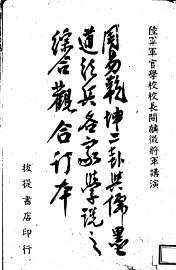 陸軍軍官學校校長關麟徵將軍講演
周易乾坤二卦與儒墨
道法兵各家學說之
綜合觀合訂本
拔提書店印行